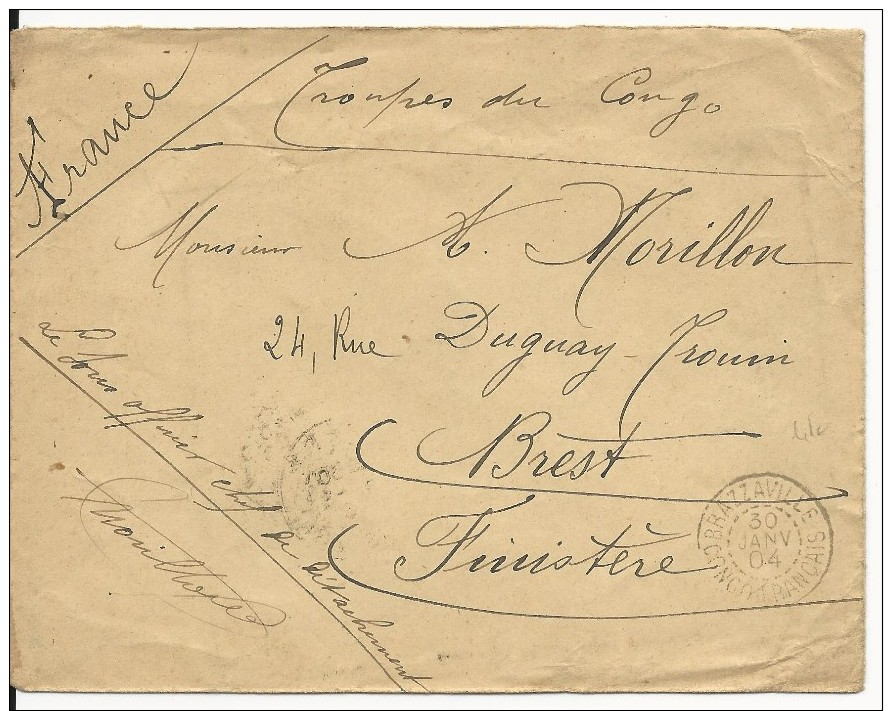 France
Troupes du Congo
Monsieur A. Morillon
24, Rue Duguay-Trouin
Brest
Finistère
Le Sous officier chef de détachement
BRAZZAVILLE
30
JANV
04
CONGO FRANÇAIS